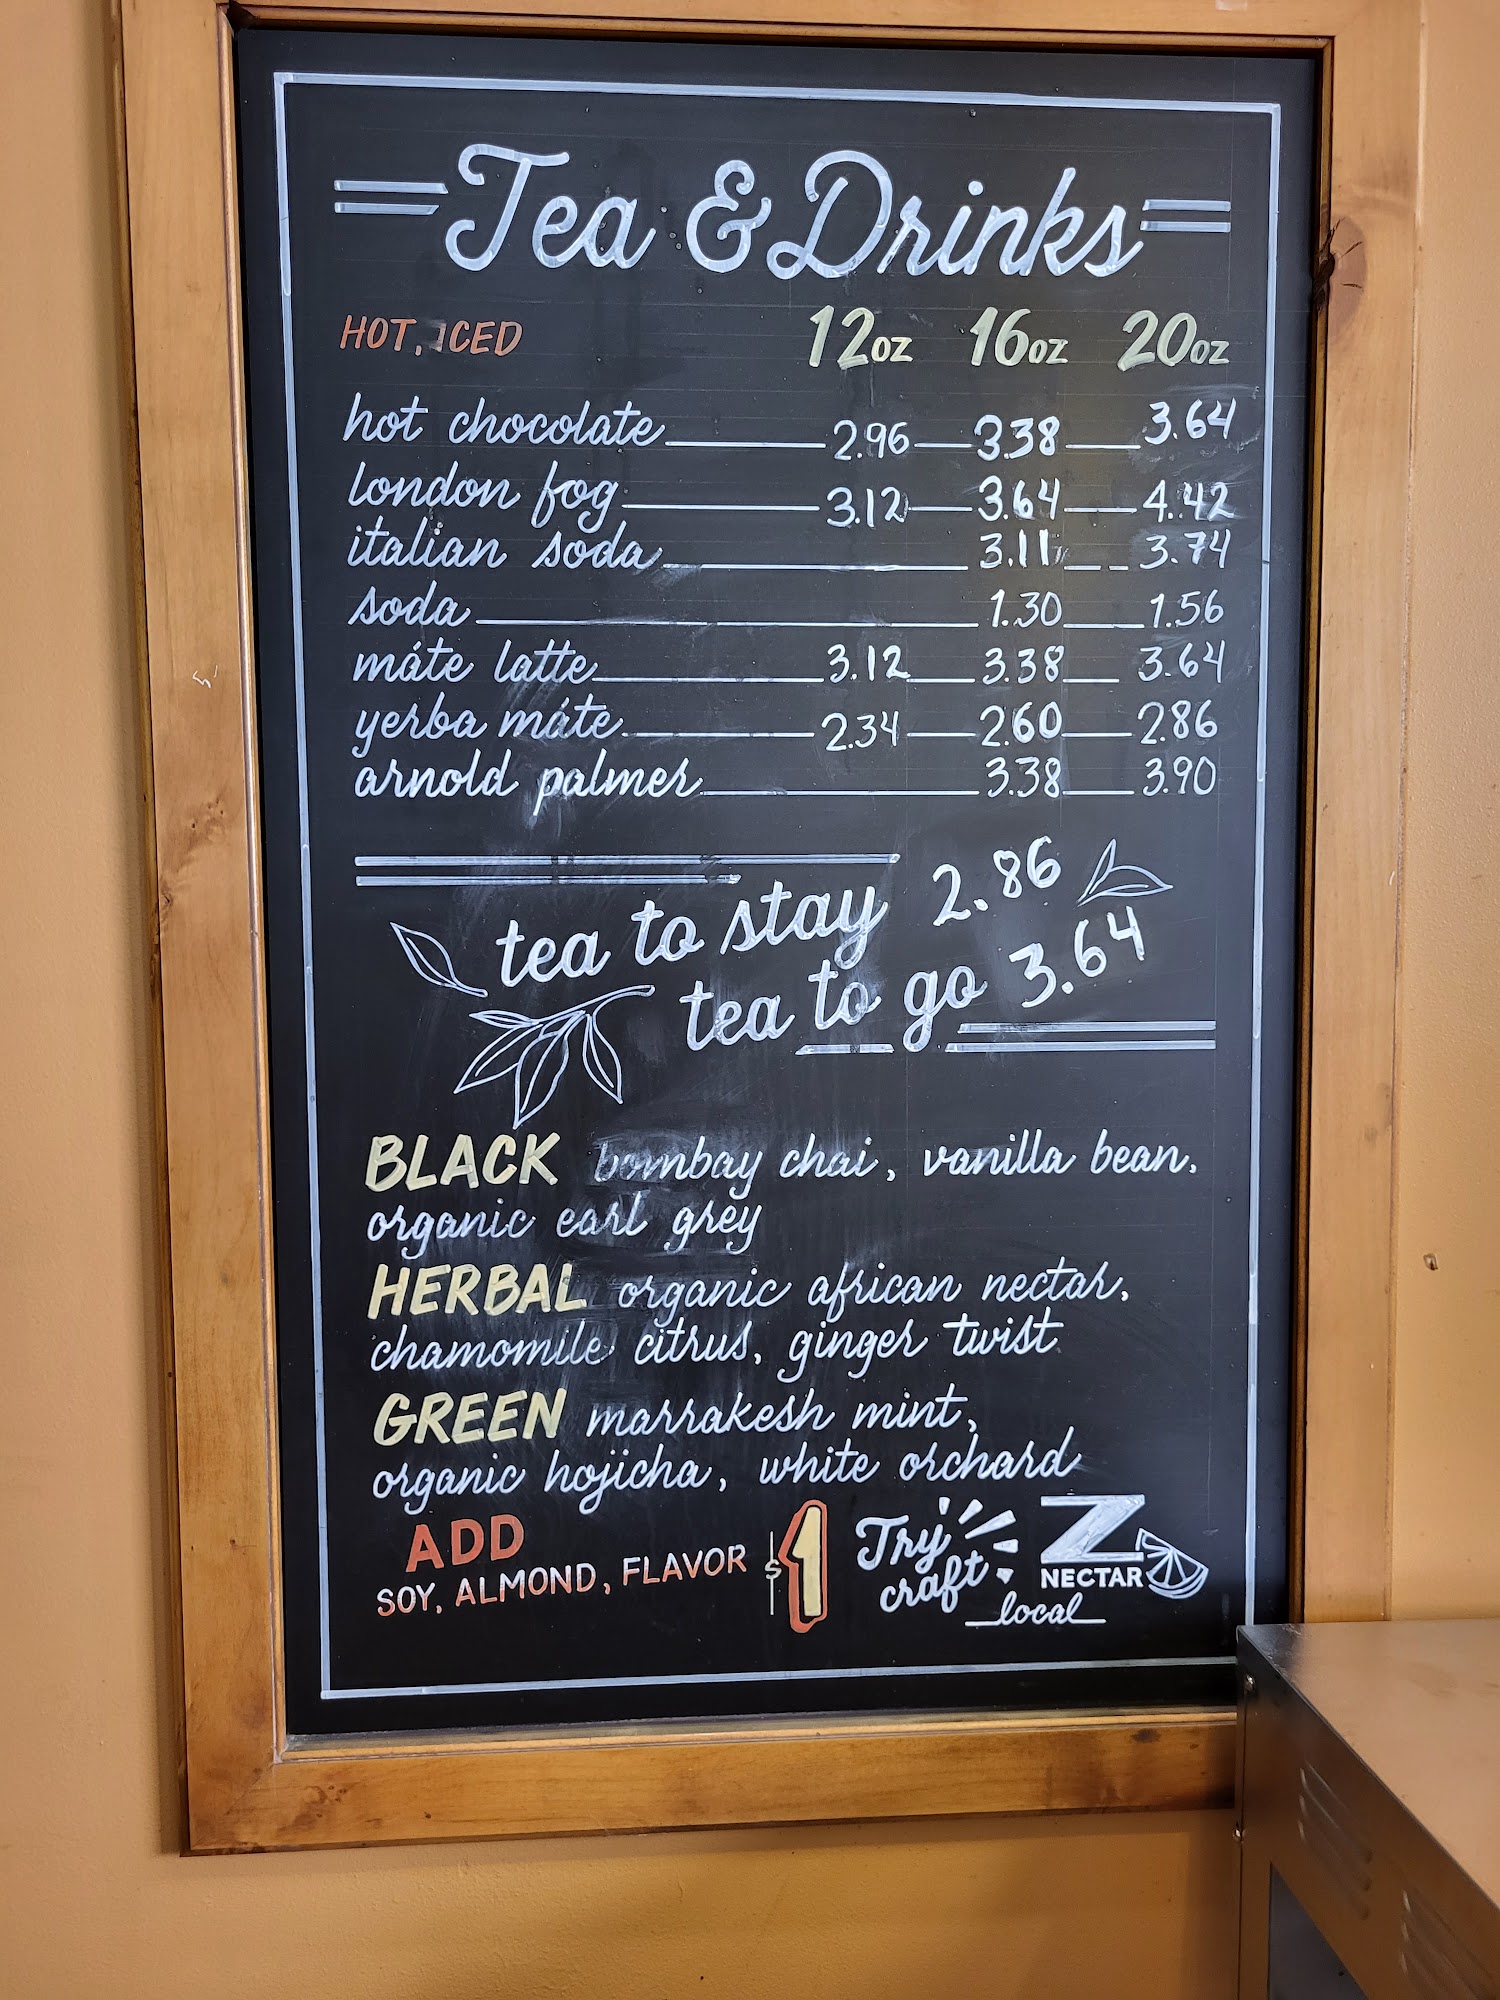 Tea & Drinks
HOT, ICED 12oz 16oz 20oz
hot chocolate 2.96 3.38 3.64
london fog 3.12 3.64 4.42
italian soda 3.11 3.74
soda 1.30 1.56
máte latte 3.12 3.38 3.64
yerba máte 2.34 2.60 2.86
arnold palmer 3.38 3.90
tea to stay 2.86
tea to go 3.64
BLACK bombay chai, vanilla bean,
organic earl grey
HERBAL organic african nectar,
chamomile citrus, ginger twist
GREEN marrakesh mint,
organic hojicha, white orchard
ADD
SOY, ALMOND, FLAVOR $1
Try craft local
Z NECTAR